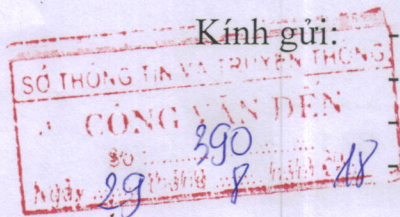 Kính gửi:
SỞ THÔNG TIN VÀ TRUYỀN THÔNG
CÔNG VĂN ĐẾN
Số 390
Ngày 29 tháng 8 năm 18